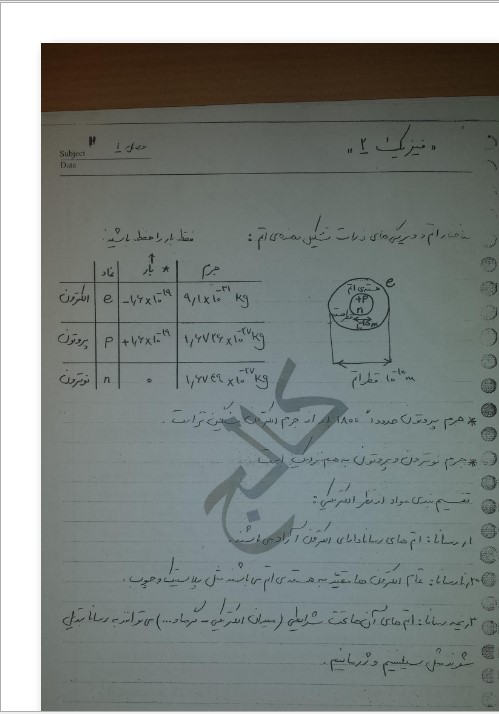 Subject " فصل ۱
Date
« فیزیک ۲ »
ساختار اتم و ویژگی‌های ذرات تشکیل دهنده‌ی اتم :
فقط بار را حفظ باشید.
نماد * بار جرم
الکترون e -۱,۶×۱۰^-۱۹ ۹,۱×۱۰^-۳۱ kg
پروتون p +۱,۶×۱۰^-۱۹ ۱,۶۷۲۶×۱۰^-۲۷ kg
نوترون n ۰ ۱,۶۷۴۹×۱۰^-۲۷ kg
e
هسته‌ی اتم
+p
n
۱۰^-۱۵ m
۱۰^-۱۰ m قطر اتم
* جرم پروتون حدوداً ۱۸۰۰ بار از جرم الکترون سنگین تر است .
* جرم نوترون و پروتون به هم نزدیک است .
تقسیم بندی مواد از نظر الکتریکی :
۱. رسانا : اتم های رسانا دارای الکترون آزاد می باشند .
۲. نارسانا : تمام الکترون ها مقید به هسته ی اتم می باشند مثل پلاستیک و چوب .
۳. نیمه رسانا : اتم های آن ها تحت شرایطی (میدان الکتریکی - گرما و ...) می توانند به رسانا تبدیل
شوند مثل سیلیسیم و ژرمانیم .
کالج